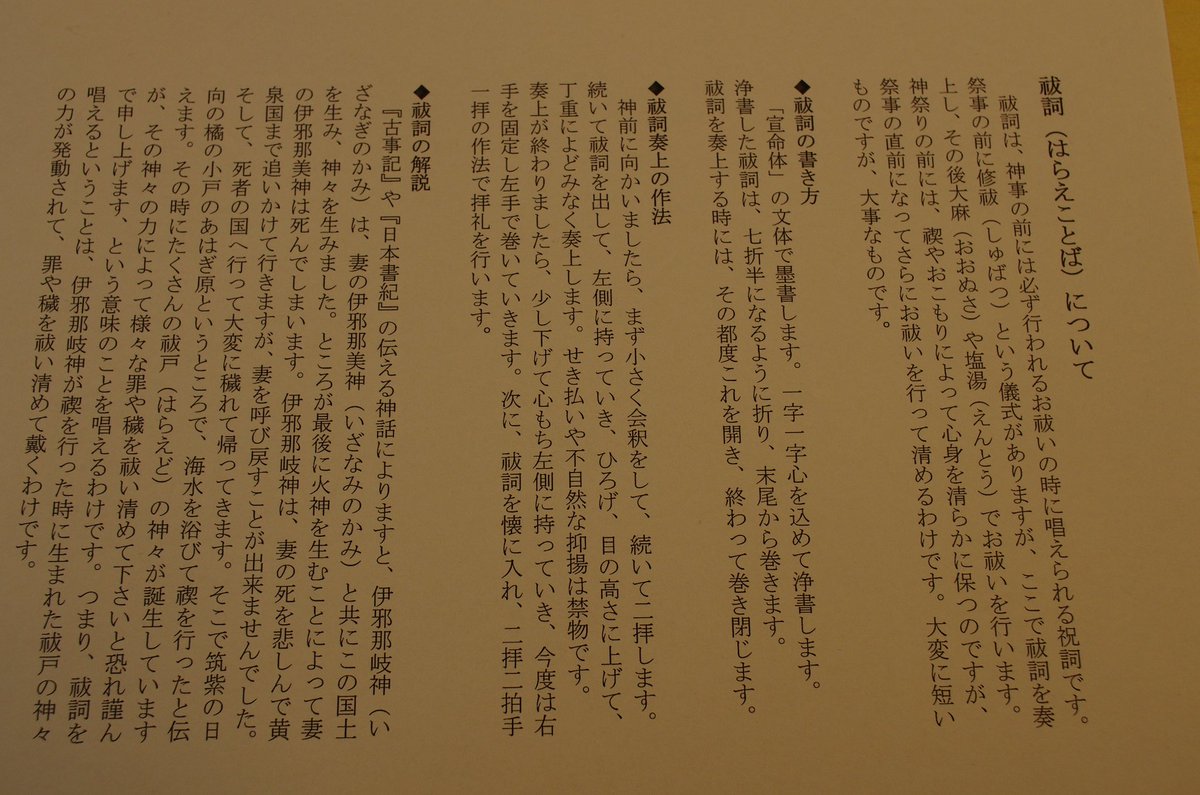 祓詞（はらえことば）について
祓詞は、神事の前には必ず行われるお祓いの時に唱えられる祝詞です。
祭事の前に修祓（しゅばつ）という儀式がありますが、ここで祓詞を奏
上し、その後大麻（おおぬさ）や塩湯（えんとう）でお祓いを行います。
神祭りの前には、禊やおこもりによって心身を清らかに保つのですが、
祭事の直前になってさらにお祓いを行って清めるわけです。大変に短い
ものですが、大事なものです。
◆祓詞の書き方
「宣命体」の文体で墨書します。一字一字心を込めて浄書します。
浄書した祓詞は、七折半になるように折り、末尾から巻きます。
祓詞を奏上する時には、その都度これを開き、終わって巻き閉じます。
◆祓詞奏上の作法
神前に向かいましたら、まず小さく会釈をして、続いて二拝します。
続いて祓詞を出して、左側に持っていき、ひろげ、目の高さに上げて、
丁重によどみなく奏上します。せき払いや不自然な抑揚は禁物です。
奏上が終わりましたら、少し下げて心もち左側に持っていき、今度は右
手を固定し左手で巻いていきます。次に、祓詞を懐に入れ、二拝二拍手
一拝の作法で拝礼を行います。
◆祓詞の解説
『古事記』や『日本書紀』の伝える神話によりますと、伊邪那岐神（い
ざなぎのかみ）は、妻の伊邪那美神（いざなみのかみ）と共にこの国土
を生み、神々を生みました。ところが最後に火神を生むことによって妻
の伊邪那美神は死んでしまいます。伊邪那岐神は、妻の死を悲しんで黄
泉国まで追いかけて行きますが、妻を呼び戻すことが出来ませんでした。
そして、死者の国へ行って大変に穢れて帰ってきます。そこで筑紫の日
向の橘の小戸のあはぎ原というところで、海水を浴びて禊を行ったと伝
えます。その時にたくさんの祓戸（はらえど）の神々が誕生しています
が、その神々の力によって様々な罪や穢を祓い清めて下さいと恐れ謹ん
で申し上げます、という意味のことを唱えるわけです。つまり、祓詞を
唱えるということは、伊邪那岐神が禊を行った時に生まれた祓戸の神々
の力が発動されて、罪や穢を祓い清めて戴くわけです。